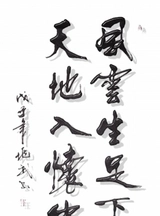 風雲生足下
天地入懷
戊子年